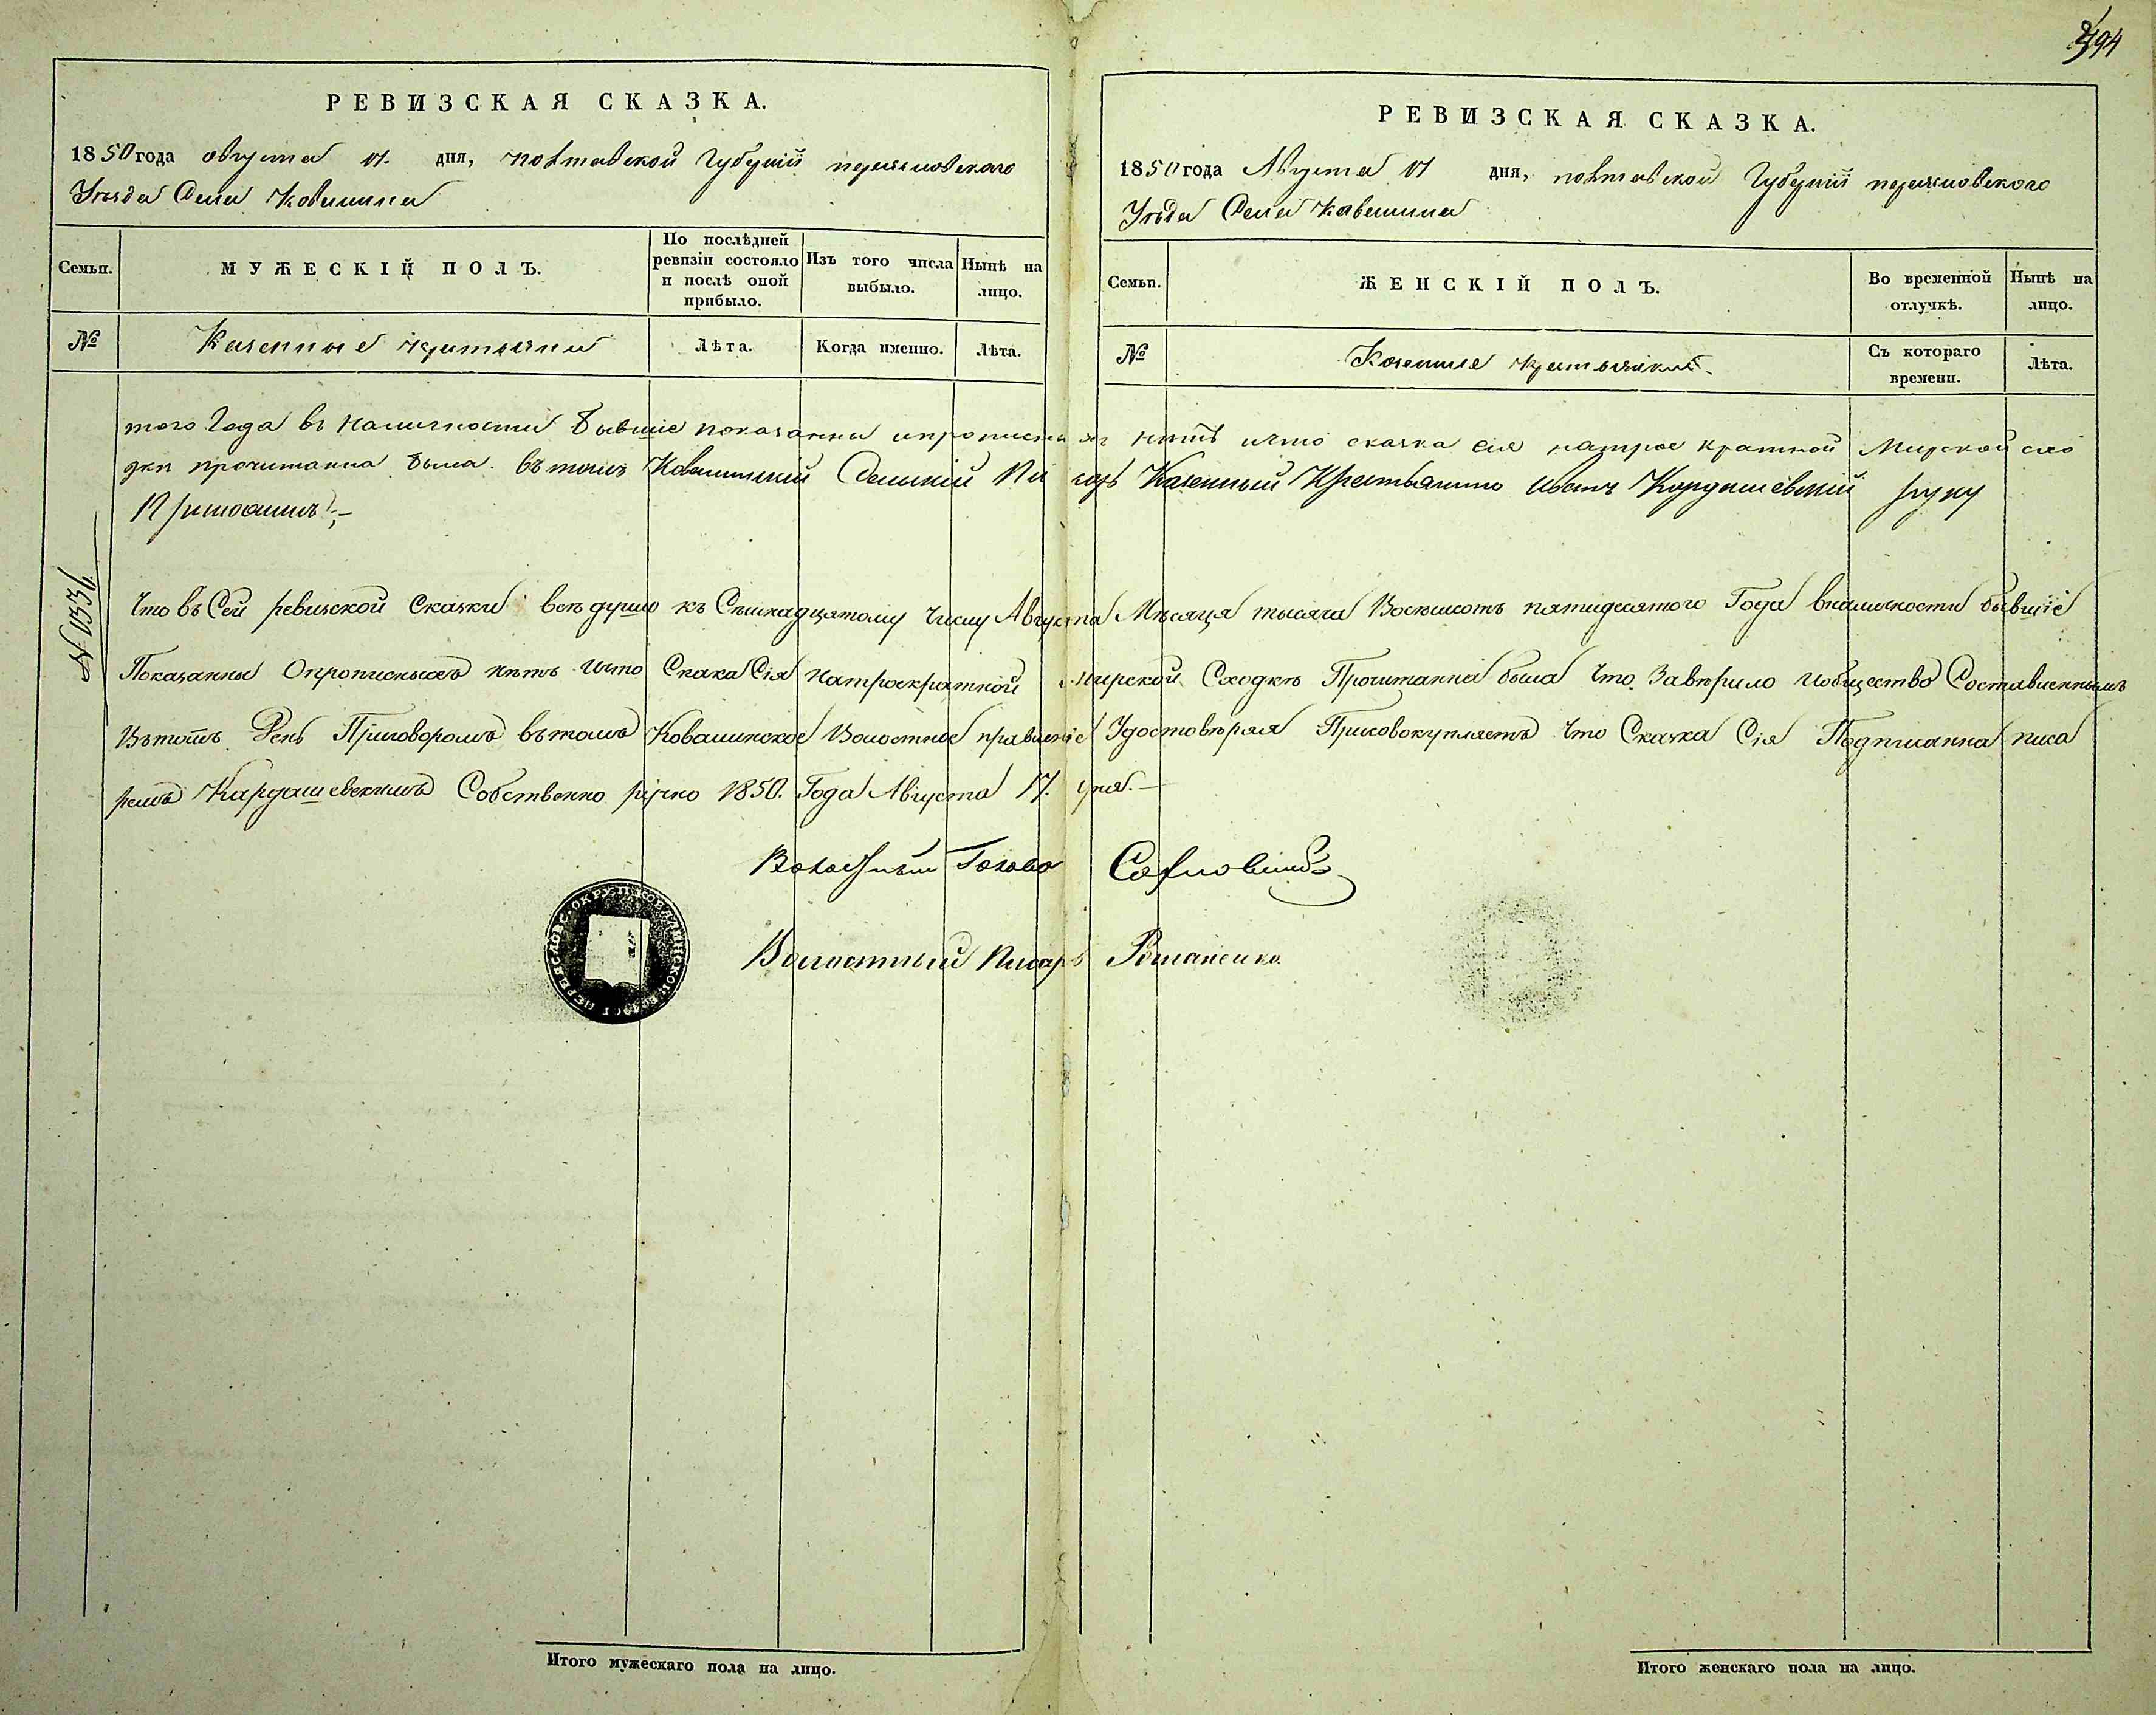 2/94
РЕВИЗСКАЯ СКАЗКА.
1850 года августа 17. дня, полтавской Губерніи переяславского
Уезда Села Ковалина
Семьи.
МУЖЕСКІЙ ПОЛЪ.
По послѣдней ревизіи состояло и послѣ оной прибыло.
Изъ того числа выбыло.
Нынѣ на лицо.
№
Казенные крестьяне
Лѣта.
Когда именно.
Лѣта.
РЕВИЗСКАЯ СКАЗКА.
1850 года Августа 17 дня, полтавской Губерніи переяславского
Уезда Села Ковалина
Семьи.
ЖЕНСКІЙ ПОЛЪ.
Во временной отлучкѣ.
Нынѣ на лицо.
№
Казенные крестьянки
Съ котораго времени.
Лѣта.
того Года въ наличности бывшіе показанны ипрописныхъ нѣтъ ичто сказка сія натрое кратной Мирской схо
дки прочитанна была. въ томъ Ковалинскій Сельскій Писарь Казенный Крестьянинъ Кордашевскій руку
Приложилъ.
№ 1336.
Что въ Сей ревизской Сказки всѣ души къ Семнадцятому Числу Августа Мѣсяца тысяча Восемсотъ пятидесятого Года вналичности бывшіе
Показанны Опрописныхъ нѣтъ ичто Сказка Сія натроекратной мирской Сходкѣ Прочитанна была Что Завѣрило иобщество Составленнымъ
Вътотъ День Приговоромъ вътомъ Ковалинское Волостное правленіе Удостовѣряя Присовокупляетъ Что Сказка Сія Подписанна писа
ремъ Кардашевскимъ Собственно ручно 1850. Года Августа 17. дня.
Волостный Голова
Волостный Писарь Романенко
ПЕРЕЯСЛОВС. ОКРУГ. КОВАЛИНСКОЙ ВОЛОСТ
Итого мужескаго пола на лицо.
Итого женскаго пола на лицо.